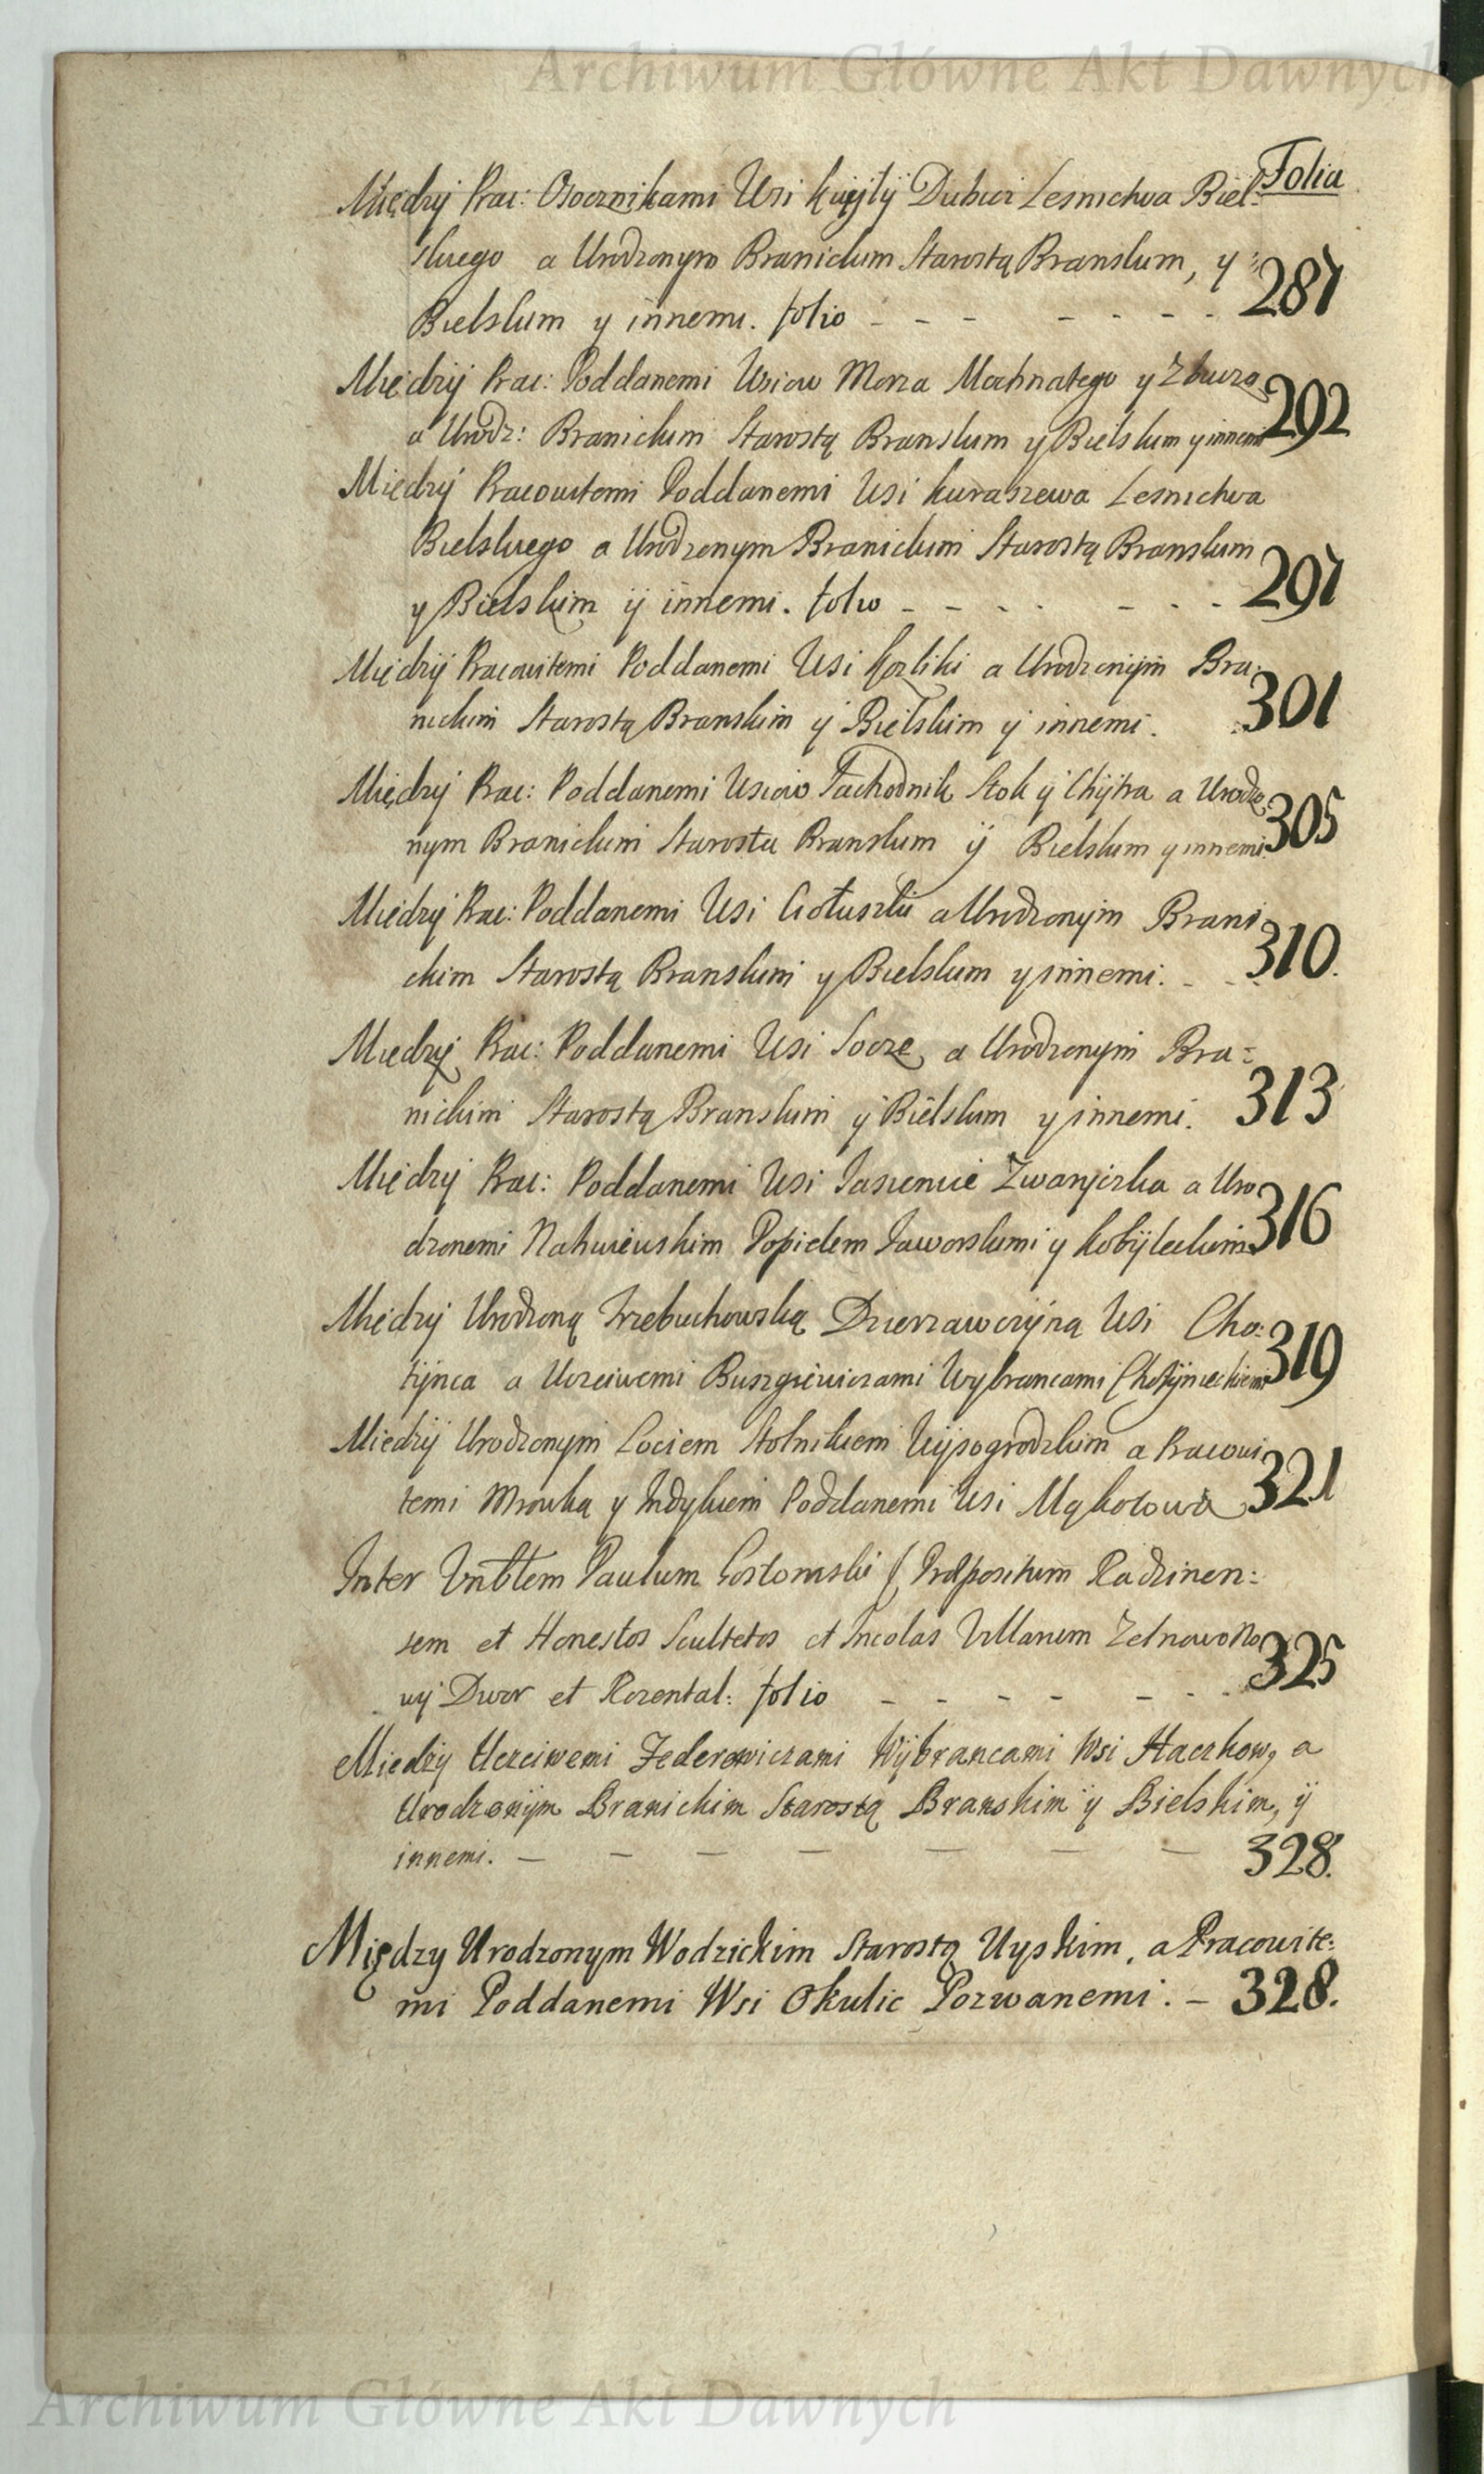 Archiwum Główne Akt Dawnych
Folia
Między Prac: Osocznikami Wsi Dubicz Lesnictwa Biel-
skiego a Urodzonym Branickim Starostą Branskim, y
Bielskim y innemi. folio - - - - - - - 287
Między Prac: Poddanemi Wsiow Morza Mochnatego y Zbucza
a Urodz: Branickim Starostą Branskim y Bielskim y innemi 292
Między Pracowitemi Poddanemi Wsi Kuraszewa Lesnictwa
Bielskiego a Urodzonym Branickim Starostą Branskim
y Bielskim y innemi. folio - - - - - - - 297
Między Pracowitemi Poddanemi Wsi Kozliki a Urodzonym Bra-
nickim Starostą Branskim y Bielskim y innemi. 301
Między Prac: Poddanemi Wsiow Stok y Chytra a Urodzo
nym Branickim Starosta Branskim y Bielskim y innemi. 305
Między Prac: Poddanemi Wsi a Urodzonym Brani
ckim Starostą Branskim y Bielskim y innemi. - - - 310.
Między Prac: Poddanemi Wsi Socze a Urodzonym Bra=
nickim Starostą Branskim y Bielskim y innemi. 313
Między Prac: Poddanemi Wsi Jasienicie a Uro
dzonemi Popielem Jaworskimi y Kobyleckim 316
Między Urodzoną Trzebuchowską Dzierzawczyną Wsi Cho:
tynca a Uczciwemi Wybrancami Chotynieckiemi 319
Między Urodzonym Łociem Stolnikiem Wysogrodzkim a Pracowi
temi Mrowką y Indykiem Poddanemi Wsi Mąkolowa 321
Inter Vnbłem Paulum Gostomski Præpositum Radzinen:
sem et Honestos Scultetos et Incolas Villarum Zelnowo No
wy Dwor et Rozental: folio - - - - - - - 325
Między Uczciwemi Federowiczami Wybrancami Wsi Haczkow, a
Urodzonym Branickim Starostą Branskim y Bielskim, y
innemi. - - - - - - - 328.
Między Urodzonym Wodzickim Starostą Uyskim, a Pracowite:
mi Poddanemi Wsi Okulic Pozwanemi. - 328.
Archiwum Główne Akt Dawnych